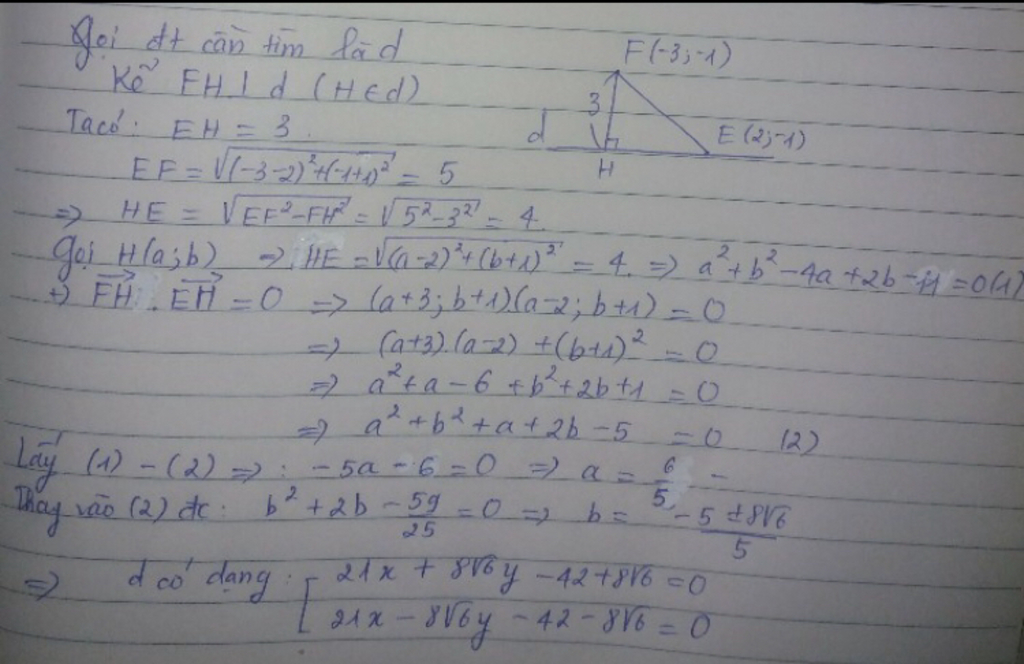 Gọi đt cần tìm là d
Kẻ FH ⊥ d (H ∈ d)
F(-3;-1)
3
d
H
E(2;-1)
Ta có: EH = 3.
EF = √((-3-2)²+(-1+1)²) = 5
=> HE = √(EF²-FH²) = √(5²-3²) = 4.
Gọi H(a;b) → HE = √((a-2)²+(b+1)²) = 4. => a²+b²-4a+2b-11=0(1)
+) FH→ . EH→ = 0 => (a+3; b+1).(a-2; b+1) = 0
=> (a+3).(a-2) + (b+1)² = 0
=> a²+a-6+b²+2b+1 = 0
=> a²+b²+a+2b-5 = 0 (2)
Lấy (1) - (2) =>: -5a-6=0 => a = 6/5 -
Thay vào (2) đc: b²+2b-59/25=0 => b = (-5±8√6)/5
=> d có dạng: [ 21x + 8√6y - 42+8√6 = 0
21x - 8√6y - 42 - 8√6 = 0